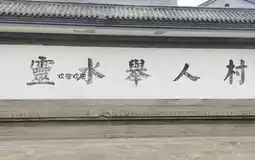 靈水舉人村